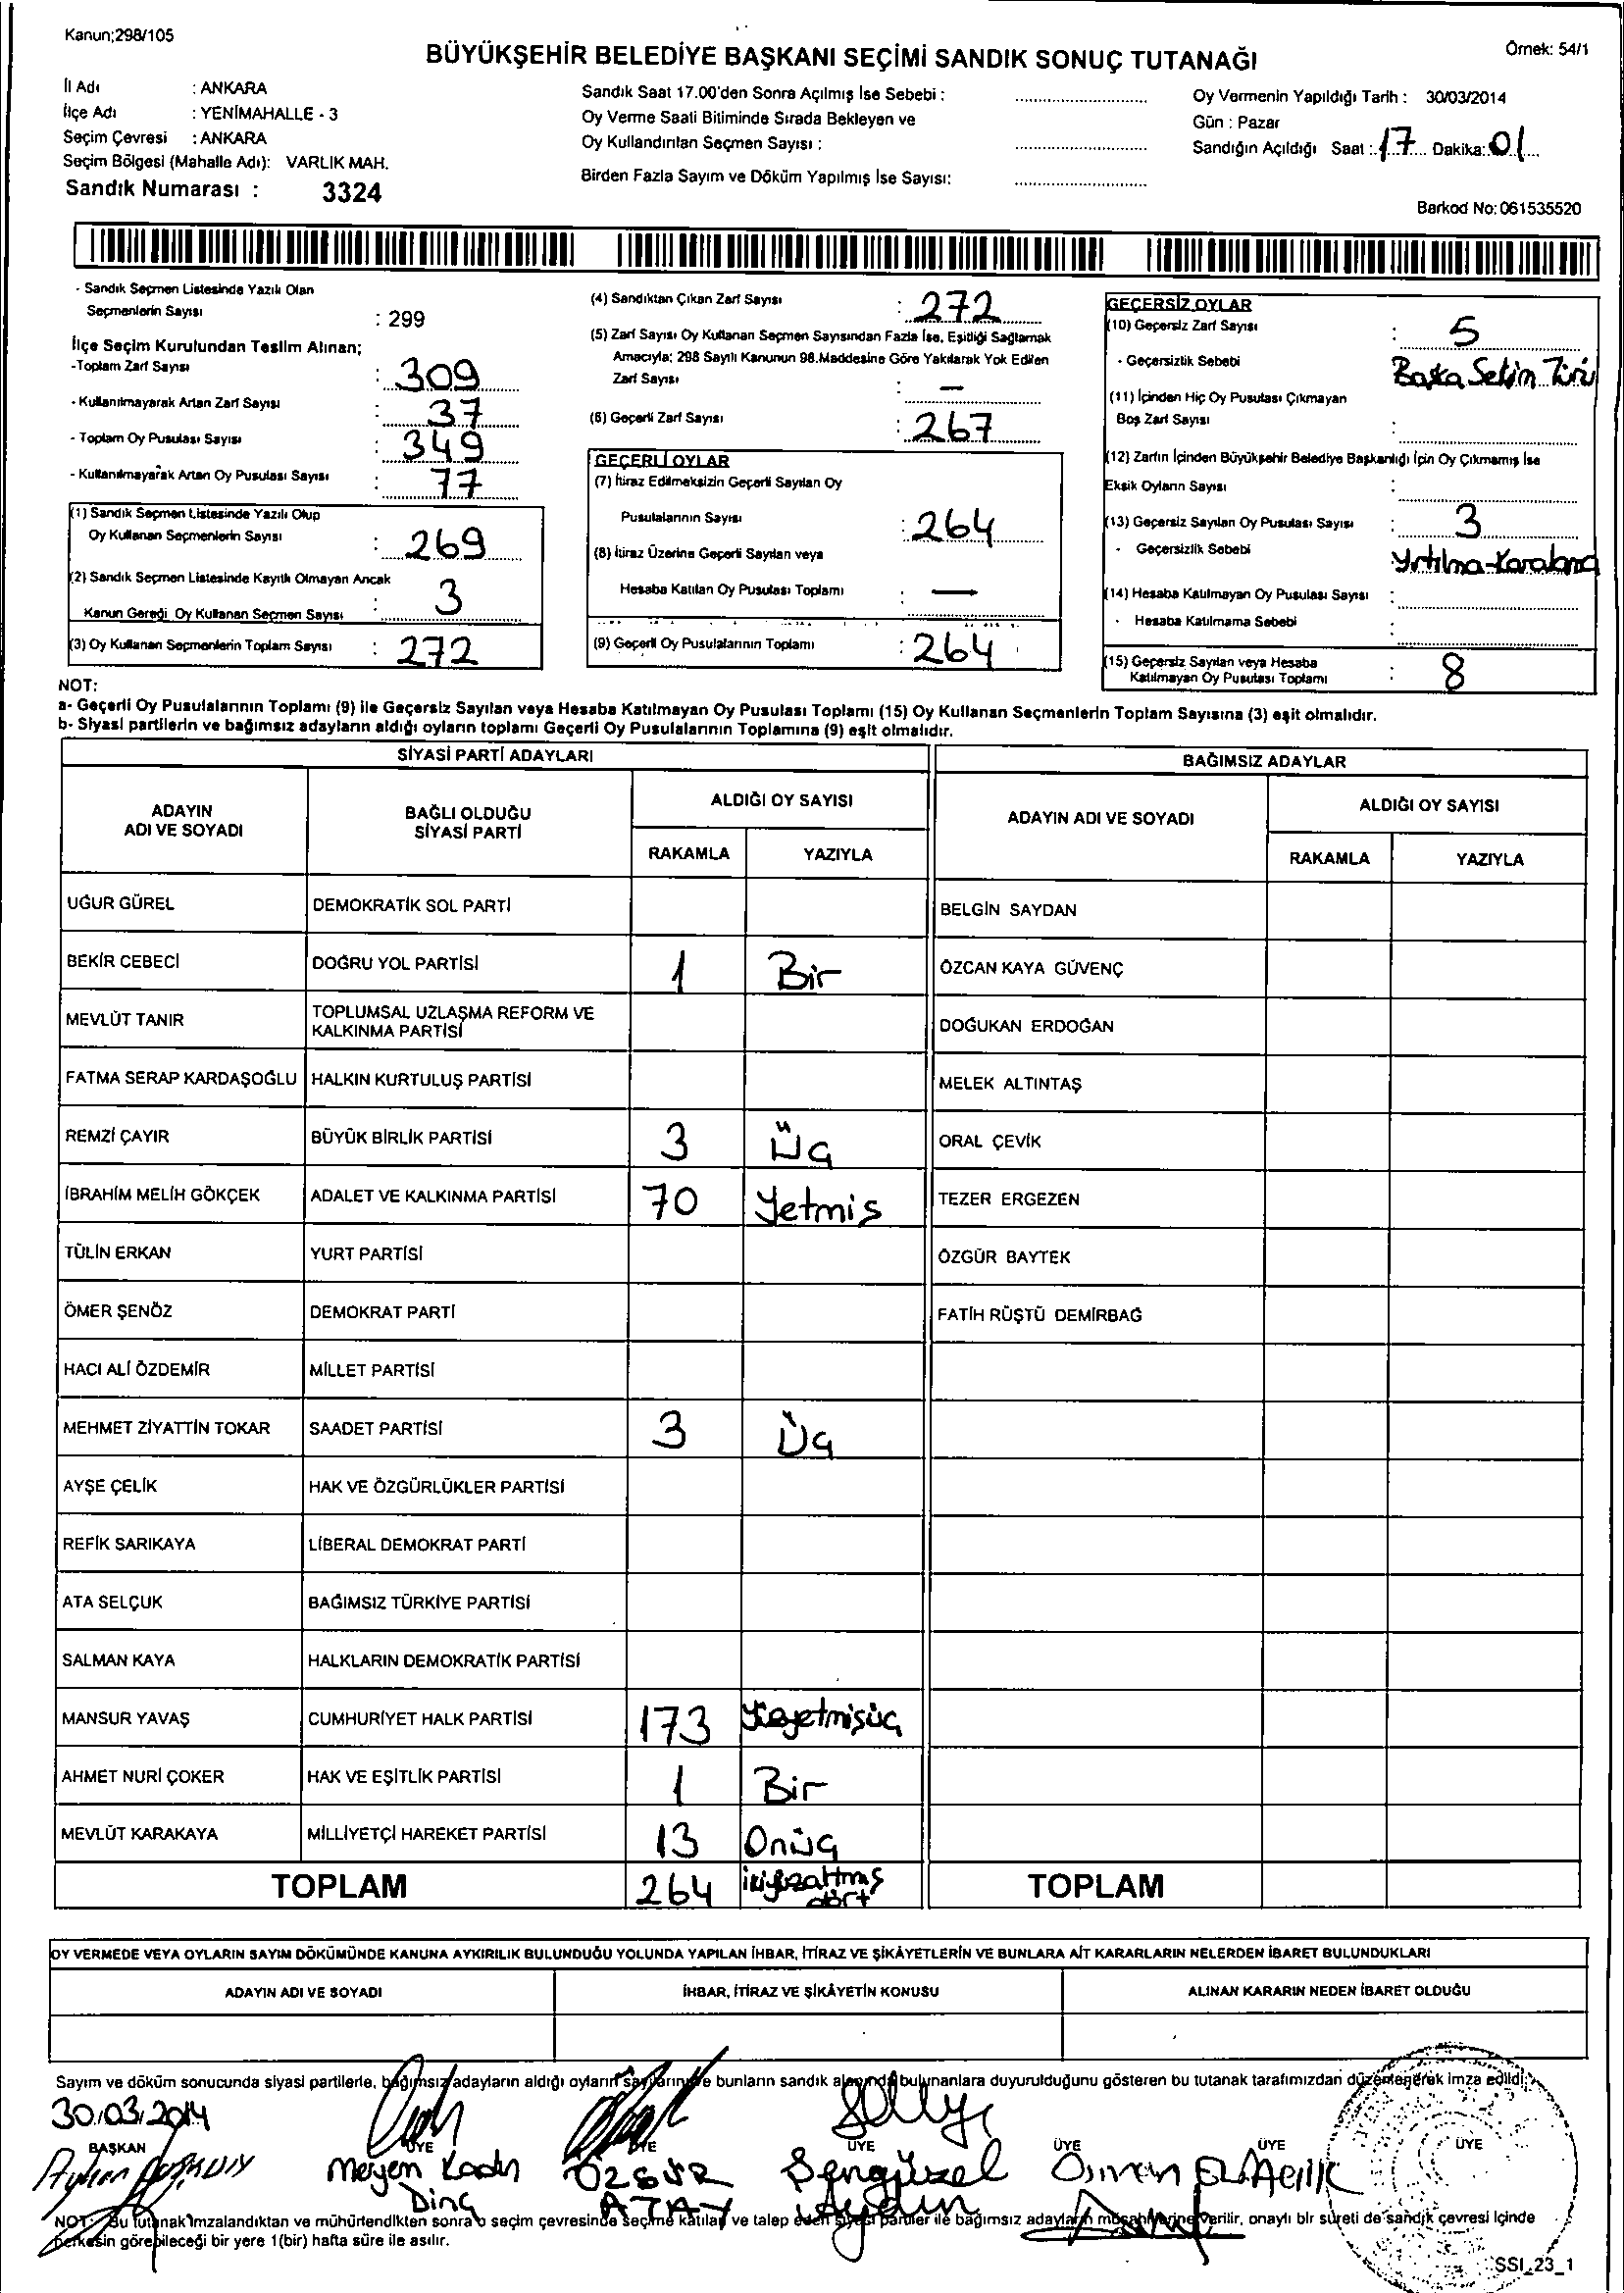 Kanun;298/105
Örnek: 54/1
BÜYÜKŞEHİR BELEDİYE BAŞKANI SEÇİMİ SANDIK SONUÇ TUTANAĞI
İl Adı : ANKARA
İlçe Adı : YENİMAHALLE - 3
Seçim Çevresi : ANKARA
Seçim Bölgesi (Mahalle Adı): VARLIK MAH.
Sandık Numarası : 3324
Sandık Saat 17.00'den Sonra Açılmış İse Sebebi :
Oy Verme Saati Bitiminde Sırada Bekleyen ve
Oy Kullandırılan Seçmen Sayısı :
Birden Fazla Sayım ve Döküm Yapılmış İse Sayısı:
Oy Vermenin Yapıldığı Tarih : 30/03/2014
Gün : Pazar
Sandığın Açıldığı Saat : 17 Dakika: 01
Barkod No: 061535520
- Sandık Seçmen Listesinde Yazılı Olan
Seçmenlerin Sayısı : 299
İlçe Seçim Kurulundan Teslim Alınan;
-Toplam Zarf Sayısı : 309
- Kullanılmayarak Artan Zarf Sayısı : 37
- Toplam Oy Pusulası Sayısı : 349
- Kullanılmayarak Artan Oy Pusulası Sayısı : 77
(1) Sandık Seçmen Listesinde Yazılı Olup
Oy Kullanan Seçmenlerin Sayısı : 269
(2) Sandık Seçmen Listesinde Kayıtlı Olmayan Ancak
Kanun Gereği Oy Kullanan Seçmen Sayısı : 3
(3) Oy Kullanan Seçmenlerin Toplam Sayısı : 272
(4) Sandıktan Çıkan Zarf Sayısı : 272
(5) Zarf Sayısı Oy Kullanan Seçmen Sayısından Fazla İse, Eşitliği Sağlamak
Amacıyla; 298 Sayılı Kanunun 98.Maddesine Göre Yakılarak Yok Edilen
Zarf Sayısı : —
(6) Geçerli Zarf Sayısı : 267
GEÇERLİ OYLAR
(7) İtiraz Edilmeksizin Geçerli Sayılan Oy
Pusulalarının Sayısı : 264
(8) İtiraz Üzerine Geçerli Sayılan veya
Hesaba Katılan Oy Pusulası Toplamı : —
(9) Geçerli Oy Pusulalarının Toplamı : 264
GEÇERSİZ OYLAR
(10) Geçersiz Zarf Sayısı : 5
- Geçersizlik Sebebi Başka Seçim Türü
(11) İçinden Hiç Oy Pusulası Çıkmayan
Boş Zarf Sayısı :
(12) Zarfın İçinden Büyükşehir Belediye Başkanlığı İçin Oy Çıkmamış İse
Eksik Oyların Sayısı :
(13) Geçersiz Sayılan Oy Pusulası Sayısı : 3
- Geçersizlik Sebebi Yırtılma-Karalama
(14) Hesaba Katılmayan Oy Pusulası Sayısı :
- Hesaba Katılmama Sebebi :
(15) Geçersiz Sayılan veya Hesaba
Katılmayan Oy Pusulası Toplamı : 8
NOT:
a- Geçerli Oy Pusulalarının Toplamı (9) ile Geçersiz Sayılan veya Hesaba Katılmayan Oy Pusulası Toplamı (15) Oy Kullanan Seçmenlerin Toplam Sayısına (3) eşit olmalıdır.
b- Siyasi partilerin ve bağımsız adayların aldığı oyların toplamı Geçerli Oy Pusulalarının Toplamına (9) eşit olmalıdır.
SİYASİ PARTİ ADAYLARI BAĞIMSIZ ADAYLAR
ADAYIN ADI VE SOYADI BAĞLI OLDUĞU SİYASİ PARTİ ALDIĞI OY SAYISI ADAYIN ADI VE SOYADI ALDIĞI OY SAYISI
RAKAMLA YAZIYLA RAKAMLA YAZIYLA
UĞUR GÜREL DEMOKRATİK SOL PARTİ BELGİN SAYDAN
BEKİR CEBECİ DOĞRU YOL PARTİSİ 1 Bir ÖZCAN KAYA GÜVENÇ
MEVLÜT TANIR TOPLUMSAL UZLAŞMA REFORM VE KALKINMA PARTİSİ DOĞUKAN ERDOĞAN
FATMA SERAP KARDAŞOĞLU HALKIN KURTULUŞ PARTİSİ MELEK ALTINTAŞ
REMZİ ÇAYIR BÜYÜK BİRLİK PARTİSİ 3 Üç ORAL ÇEVİK
İBRAHİM MELİH GÖKÇEK ADALET VE KALKINMA PARTİSİ 70 Yetmis TEZER ERGEZEN
TÜLİN ERKAN YURT PARTİSİ ÖZGÜR BAYTEK
ÖMER ŞENÖZ DEMOKRAT PARTİ FATİH RÜŞTÜ DEMİRBAĞ
HACI ALİ ÖZDEMİR MİLLET PARTİSİ
MEHMET ZİYATTİN TOKAR SAADET PARTİSİ 3 Üç
AYŞE ÇELİK HAK VE ÖZGÜRLÜKLER PARTİSİ
REFİK SARIKAYA LİBERAL DEMOKRAT PARTİ
ATA SELÇUK BAĞIMSIZ TÜRKİYE PARTİSİ
SALMAN KAYA HALKLARIN DEMOKRATİK PARTİSİ
MANSUR YAVAŞ CUMHURİYET HALK PARTİSİ 173 Yüzyetmişüç
AHMET NURİ ÇOKER HAK VE EŞİTLİK PARTİSİ 1 Bir
MEVLÜT KARAKAYA MİLLİYETÇİ HAREKET PARTİSİ 13 Onüç
TOPLAM 264 ikiyüzaltmış dört TOPLAM
OY VERMEDE VEYA OYLARIN SAYIM DÖKÜMÜNDE KANUNA AYKIRILIK BULUNDUĞU YOLUNDA YAPILAN İHBAR, İTİRAZ VE ŞİKÂYETLERİN VE BUNLARA AİT KARARLARIN NELERDEN İBARET BULUNDUKLARI
ADAYIN ADI VE SOYADI İHBAR, İTİRAZ VE ŞİKÂYETİN KONUSU ALINAN KARARIN NEDEN İBARET OLDUĞU
Sayım ve döküm sonucunda siyasi partilerle, bağımsız adayların aldığı oyların sayılarını ve bunların sandık alanında bulunanlara duyurulduğunu gösteren bu tutanak tarafımızdan düzenlenerek imza edildi.
30.03.2014
BAŞKAN ÜYE ÜYE ÜYE ÜYE ÜYE ÜYE
Meryem Kadın Dinç
ÖZGÜR ATAY
Şengüzel Aydın
Osman
NOT: Bu tutanak imzalandıktan ve mühürlendikten sonra o seçim çevresinde seçime katılan ve talep eden siyasi partiler ile bağımsız adayların müşahitlerine verilir, onaylı bir sureti de sandık çevresi içinde
herkesin görebileceği bir yere 1(bir) hafta süre ile asılır.
SSI_23_1